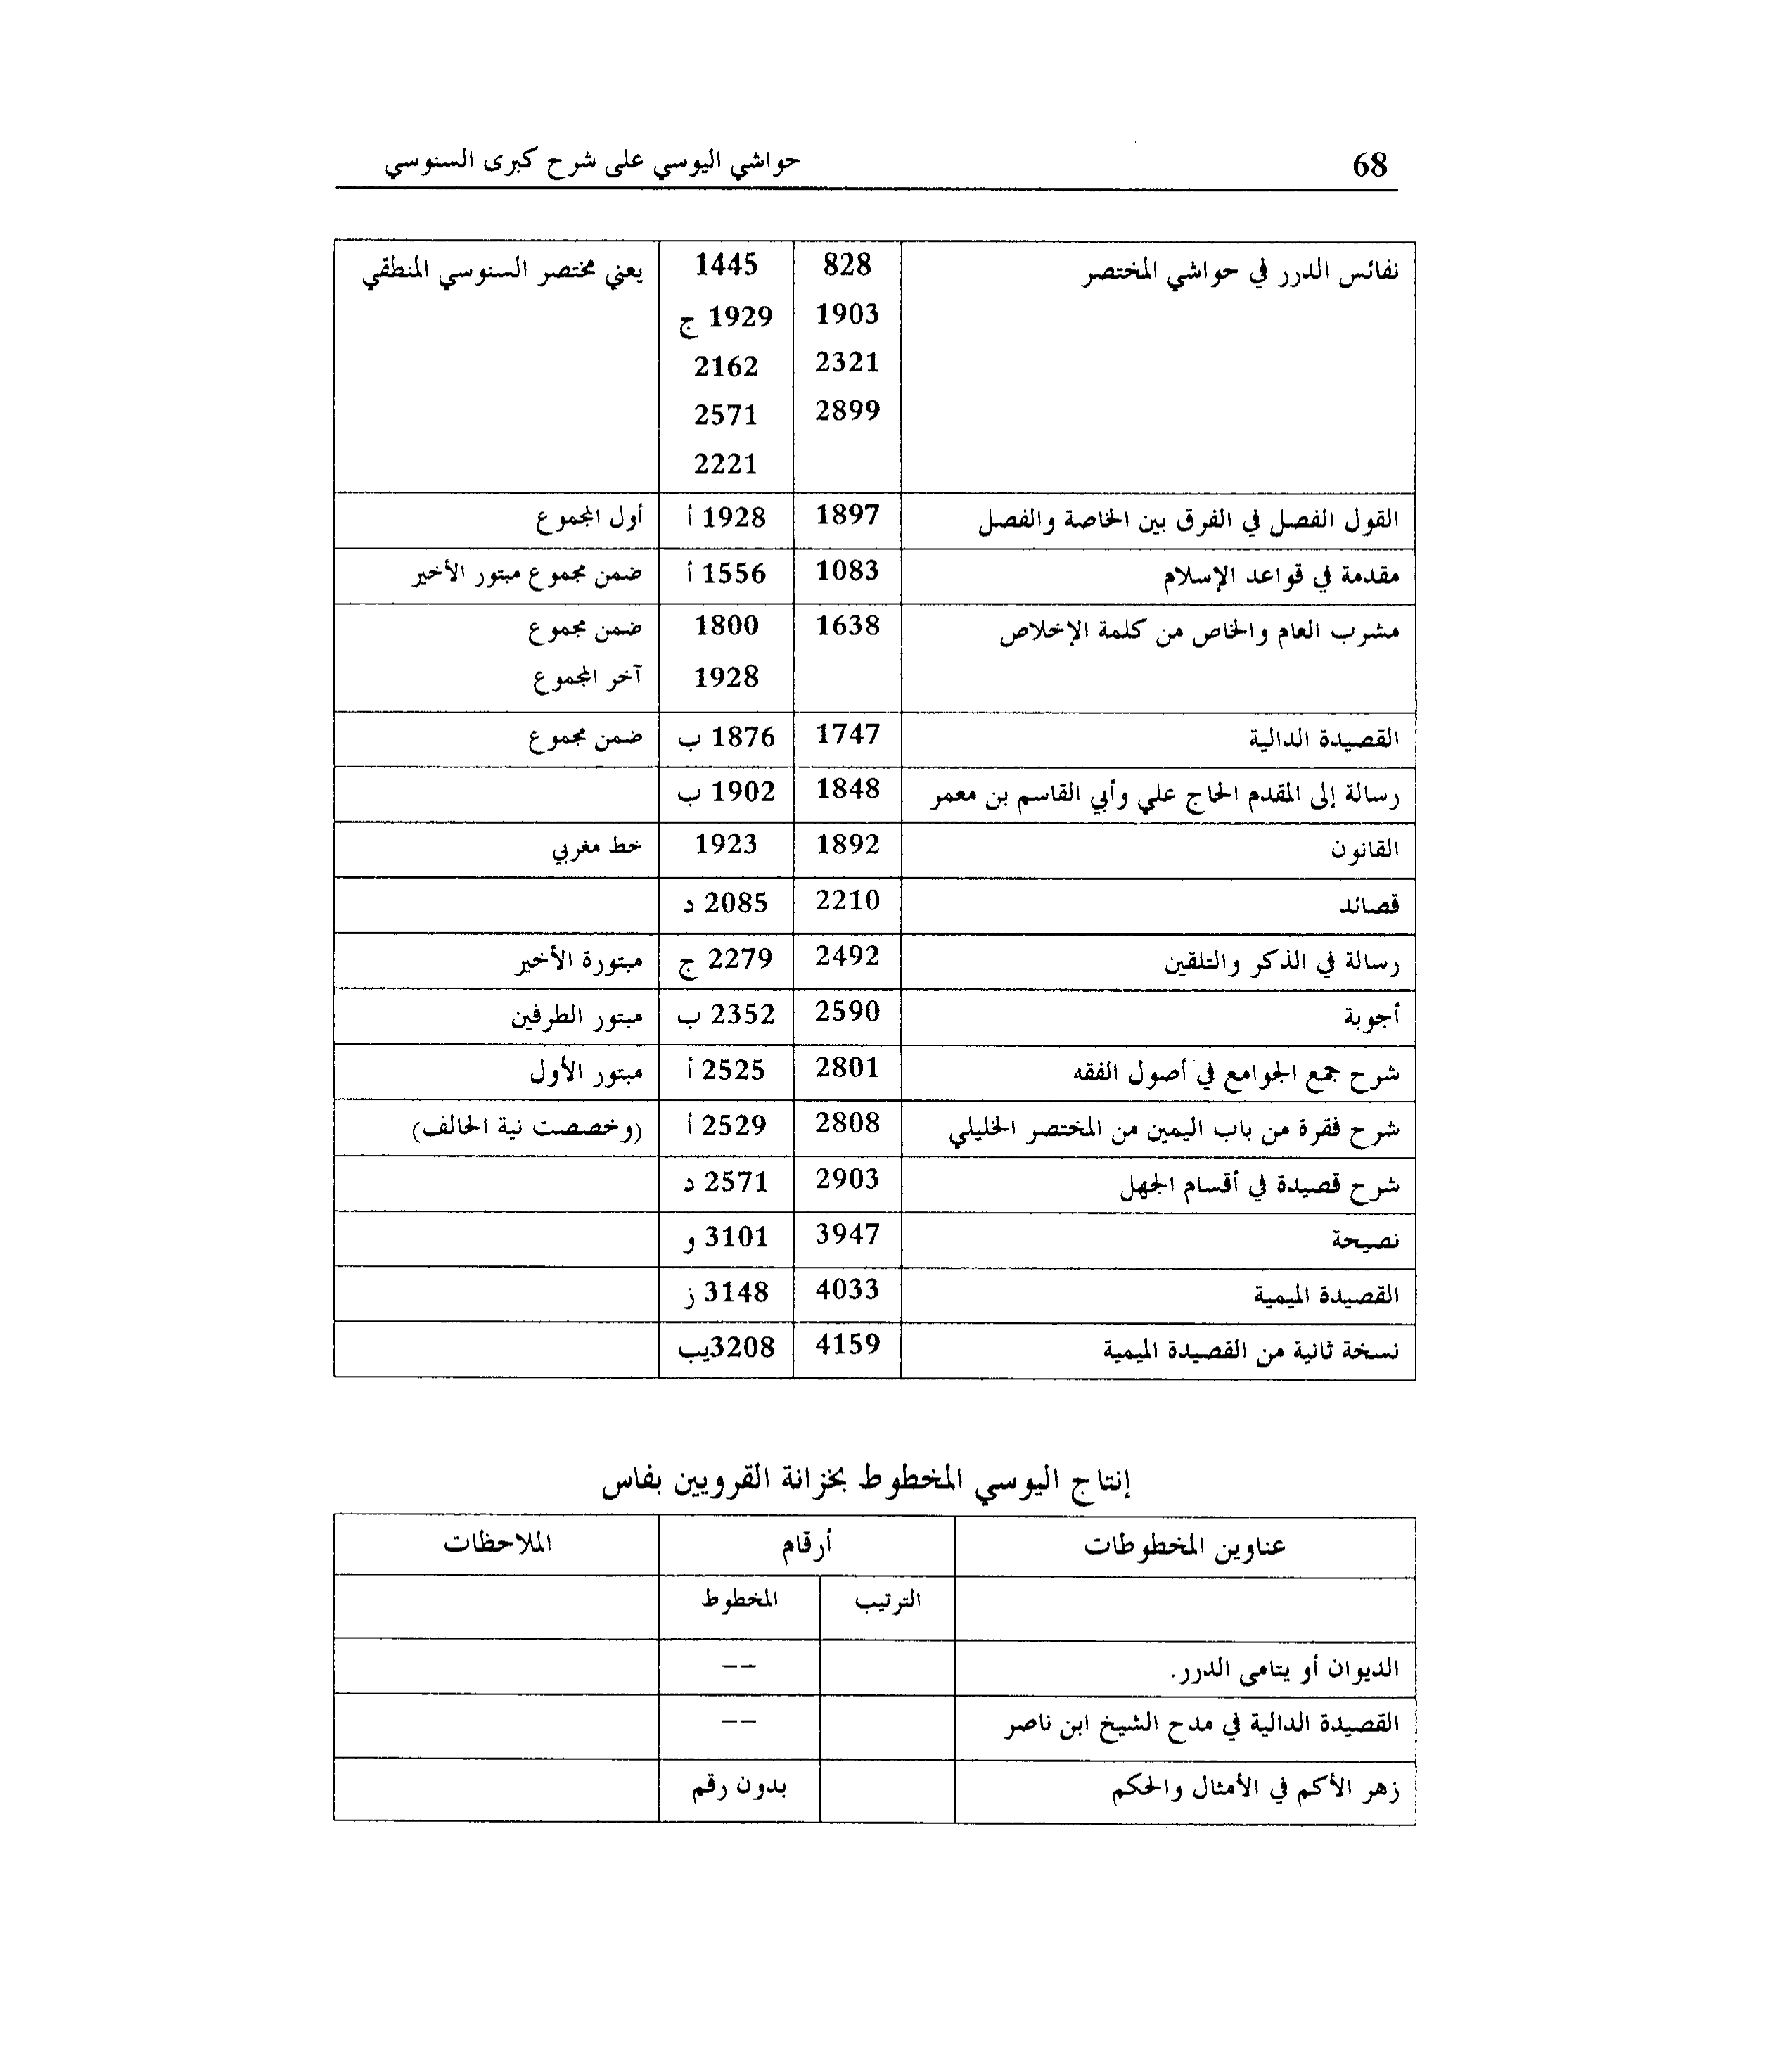 68 حواشي اليوسي على شرح كبرى السنوسي
نفائس الدرر في حواشي المختصر 828 1445 يعني مختصر السنوسي المنطقي
1903 1929 ج
2321 2162
2899 2571
2221
القول الفصل في الفرق بين الخاصة والفصل 1897 1928 أ أول المجموع
مقدمة في قواعد الإسلام 1083 1556 أ ضمن مجموع مبتور الأخير
مشرب العام والخاص من كلمة الإخلاص 1638 1800 ضمن مجموع
1928 آخر المجموع
القصيدة الدالية 1747 1876 ب ضمن مجموع
رسالة إلى المقدم الحاج علي وأبي القاسم بن معمر 1848 1902 ب
القانون 1892 1923 خط مغربي
قصائد 2210 2085 د
رسالة في الذكر والتلقين 2492 2279 ج مبتورة الأخير
أجوبة 2590 2352 ب مبتور الطرفين
شرح جمع الجوامع في أصول الفقه 2801 2525 أ مبتور الأول
شرح فقرة من باب اليمين من المختصر الخليلي 2808 2529 أ (وخصصت نية الحالف)
شرح قصيدة في أقسام الجهل 2903 2571 د
نصيحة 3947 3101 و
القصيدة الميمية 4033 3148 ز
نسخة ثانية من القصيدة الميمية 4159 3208يب
إنتاج اليوسي المخطوط بخزانة القرويين بفاس
عناوين المخطوطات أرقام الملاحظات
الترتيب المخطوط
الديوان أو يتامى الدرر. --
القصيدة الدالية في مدح الشيخ ابن ناصر --
زهر الأكم في الأمثال والحكم بدون رقم